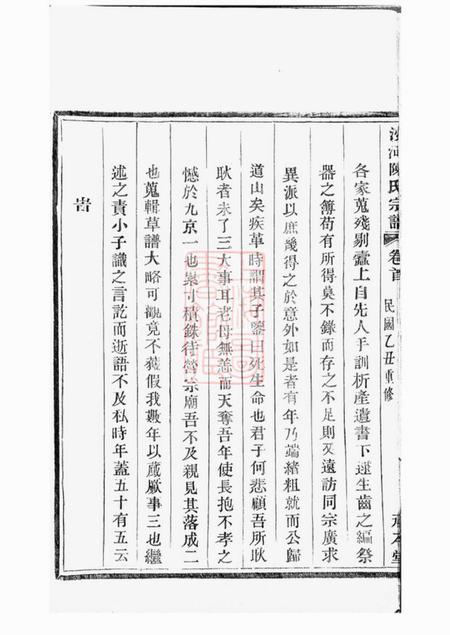 沙河陳氏宗譜 卷首 民國乙丑重修
各家蒐殘剔蠹上自先人手訓析產遺書下逮生齒之編祭
器之簿苟有所得莫不錄而存之不足則又遠訪同宗廣求
異派以庶幾得之於意外如是者有年乃端緒粗就而公歸
道山矣疾革時謂其子曰死生命也君子何悲顧吾所耿
耿者未了三大事耳老母無恙而天奪吾年使長抱不孝之
憾於九京一也 積銖待營宗廟吾不及親見其落成二
也蒐輯草譜大略可觀竟不獲假我數年以蕆厥事三也繼
述之責小子識之言訖而逝語不及私時年蓋五十有五云